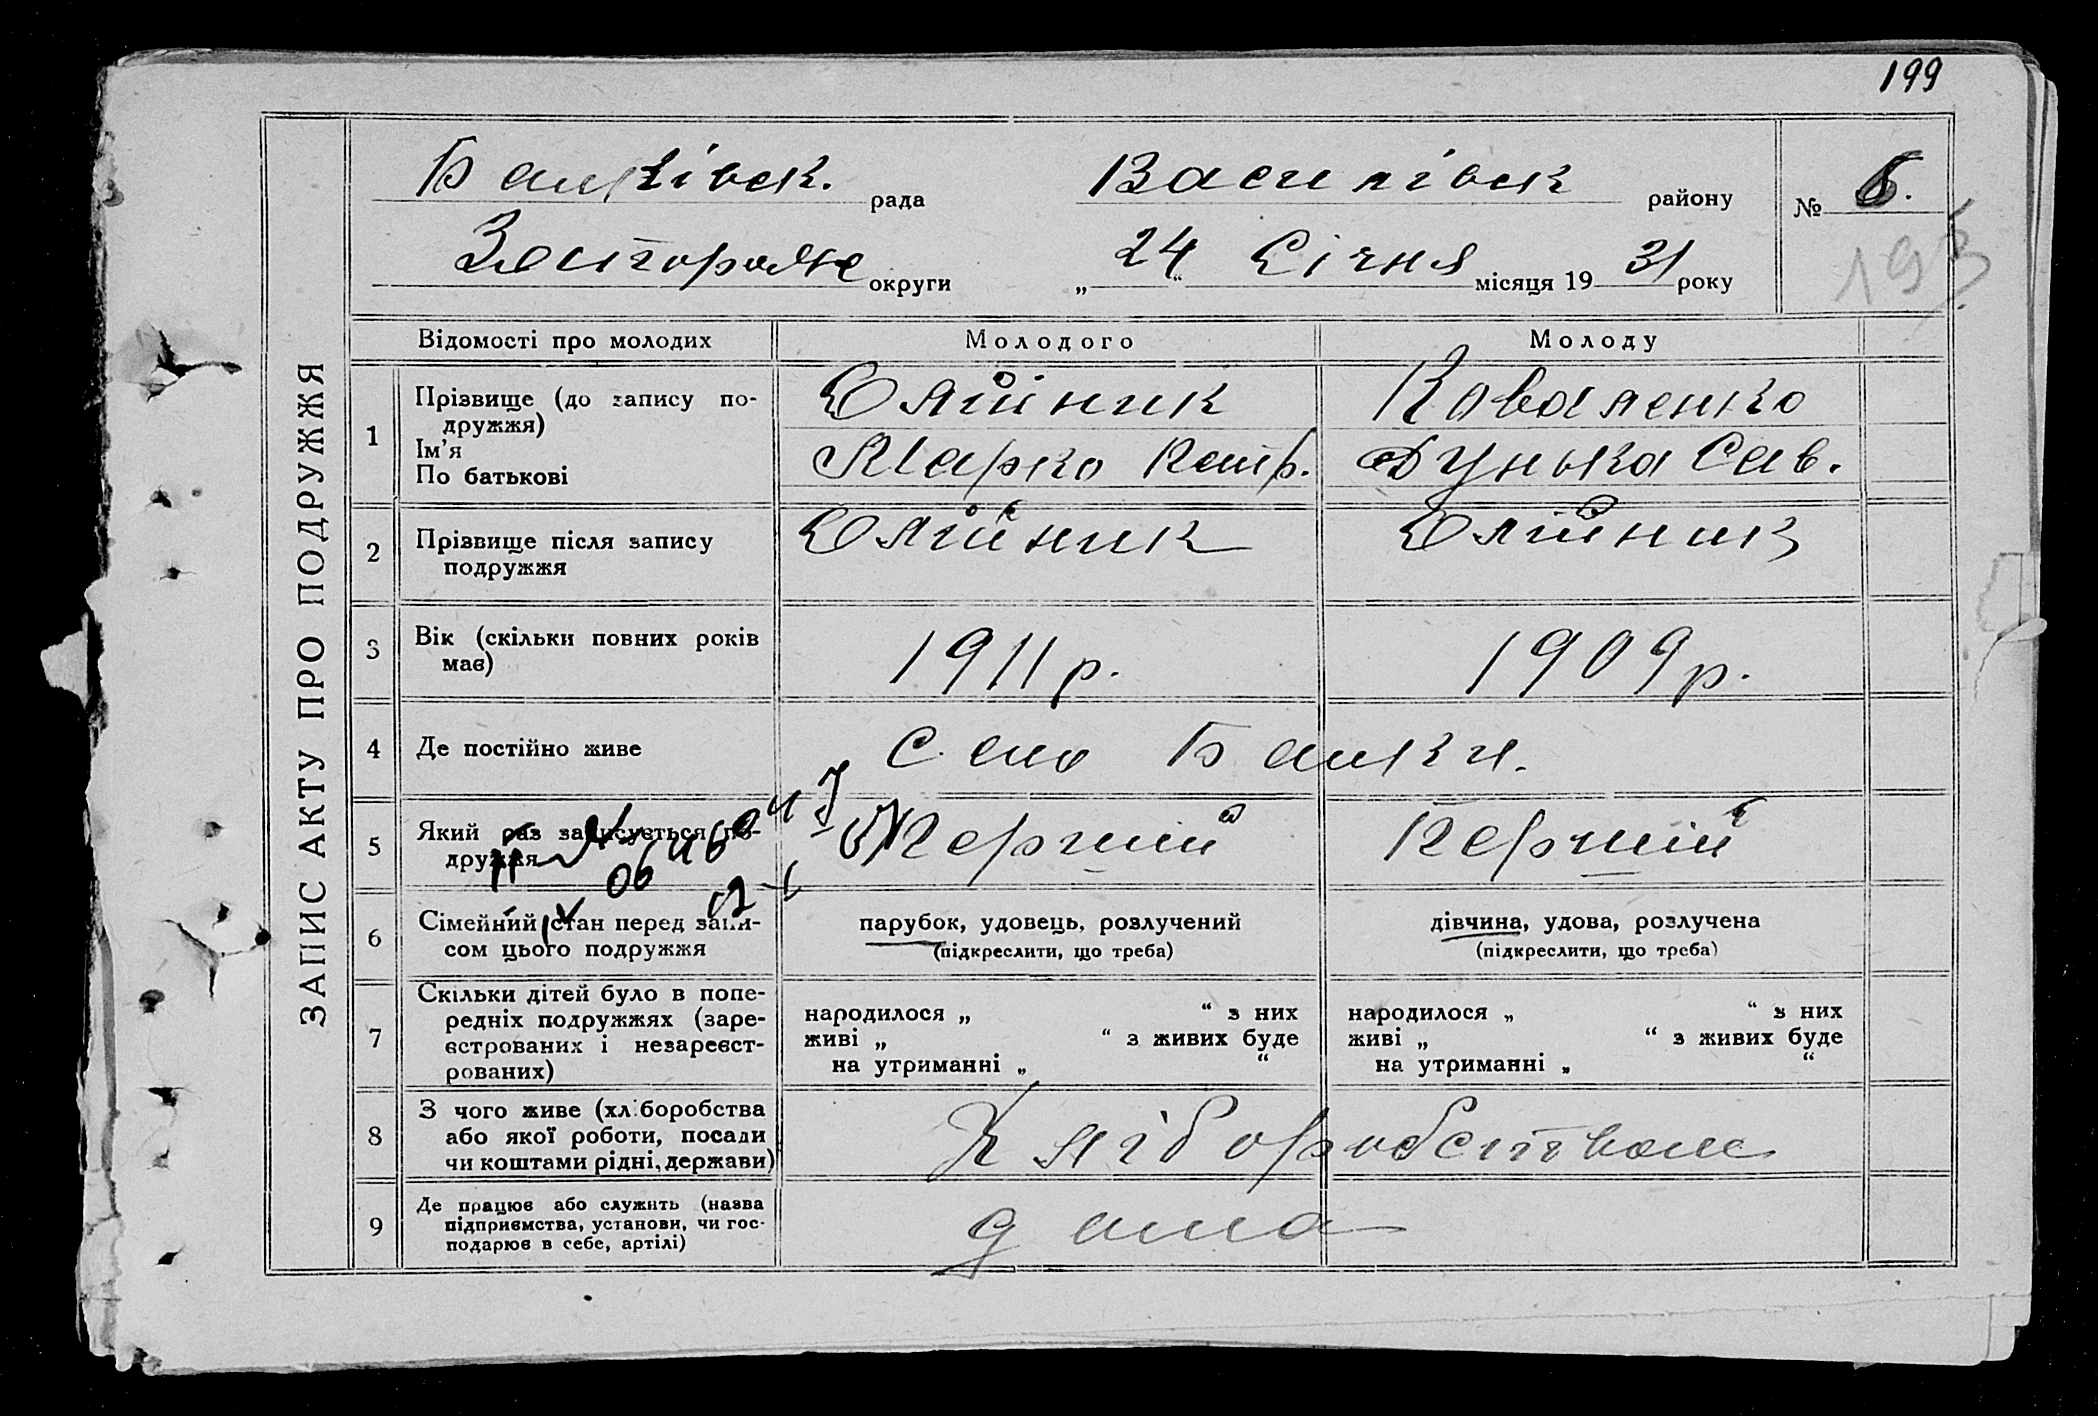 199
Балківск. рада Василівск району № 6.
Запорожс округи „24“ Січня місяця 1931 року
193
ЗАПИС АКТУ ПРО ПОДРУЖЖЯ
Відомості про молодих Молодого Молоду
1 Прізвище (до запису по-
дружжя)
Ім’я
По батькові
Олійник Коваленко
Марко Дунька Сав.
2 Прізвище після запису
подружжя
Олійник Олійник
3 Вік (скільки повних років
має)
1911р. 1909р.
4 Де постійно живе Село Балки.
5 Який раз записується по-
дружжя
Перший Перший
6 Сімейний стан перед запи-
сом цього подружжя
парубок, удовець, розлучений
(підкреслити, що треба)
дівчина, удова, розлучена
(підкреслити, що треба)
7 Скільки дітей було в попе-
редніх подружжях (заре-
єстрованих і незареєст-
рованих)
народилося „ “ з них
живі „ “ з живих буде
на утриманні „ “
народилося „ “ з них
живі „ “ з живих буде
на утриманні „ “
8 З чого живе (хліборобства
або якої роботи, посади
чи коштами рідні, держави)
Хліборобством
9 Де працює або служить (назва
підприємства, установи, чи гос-
подарює в себе, артілі)
дома